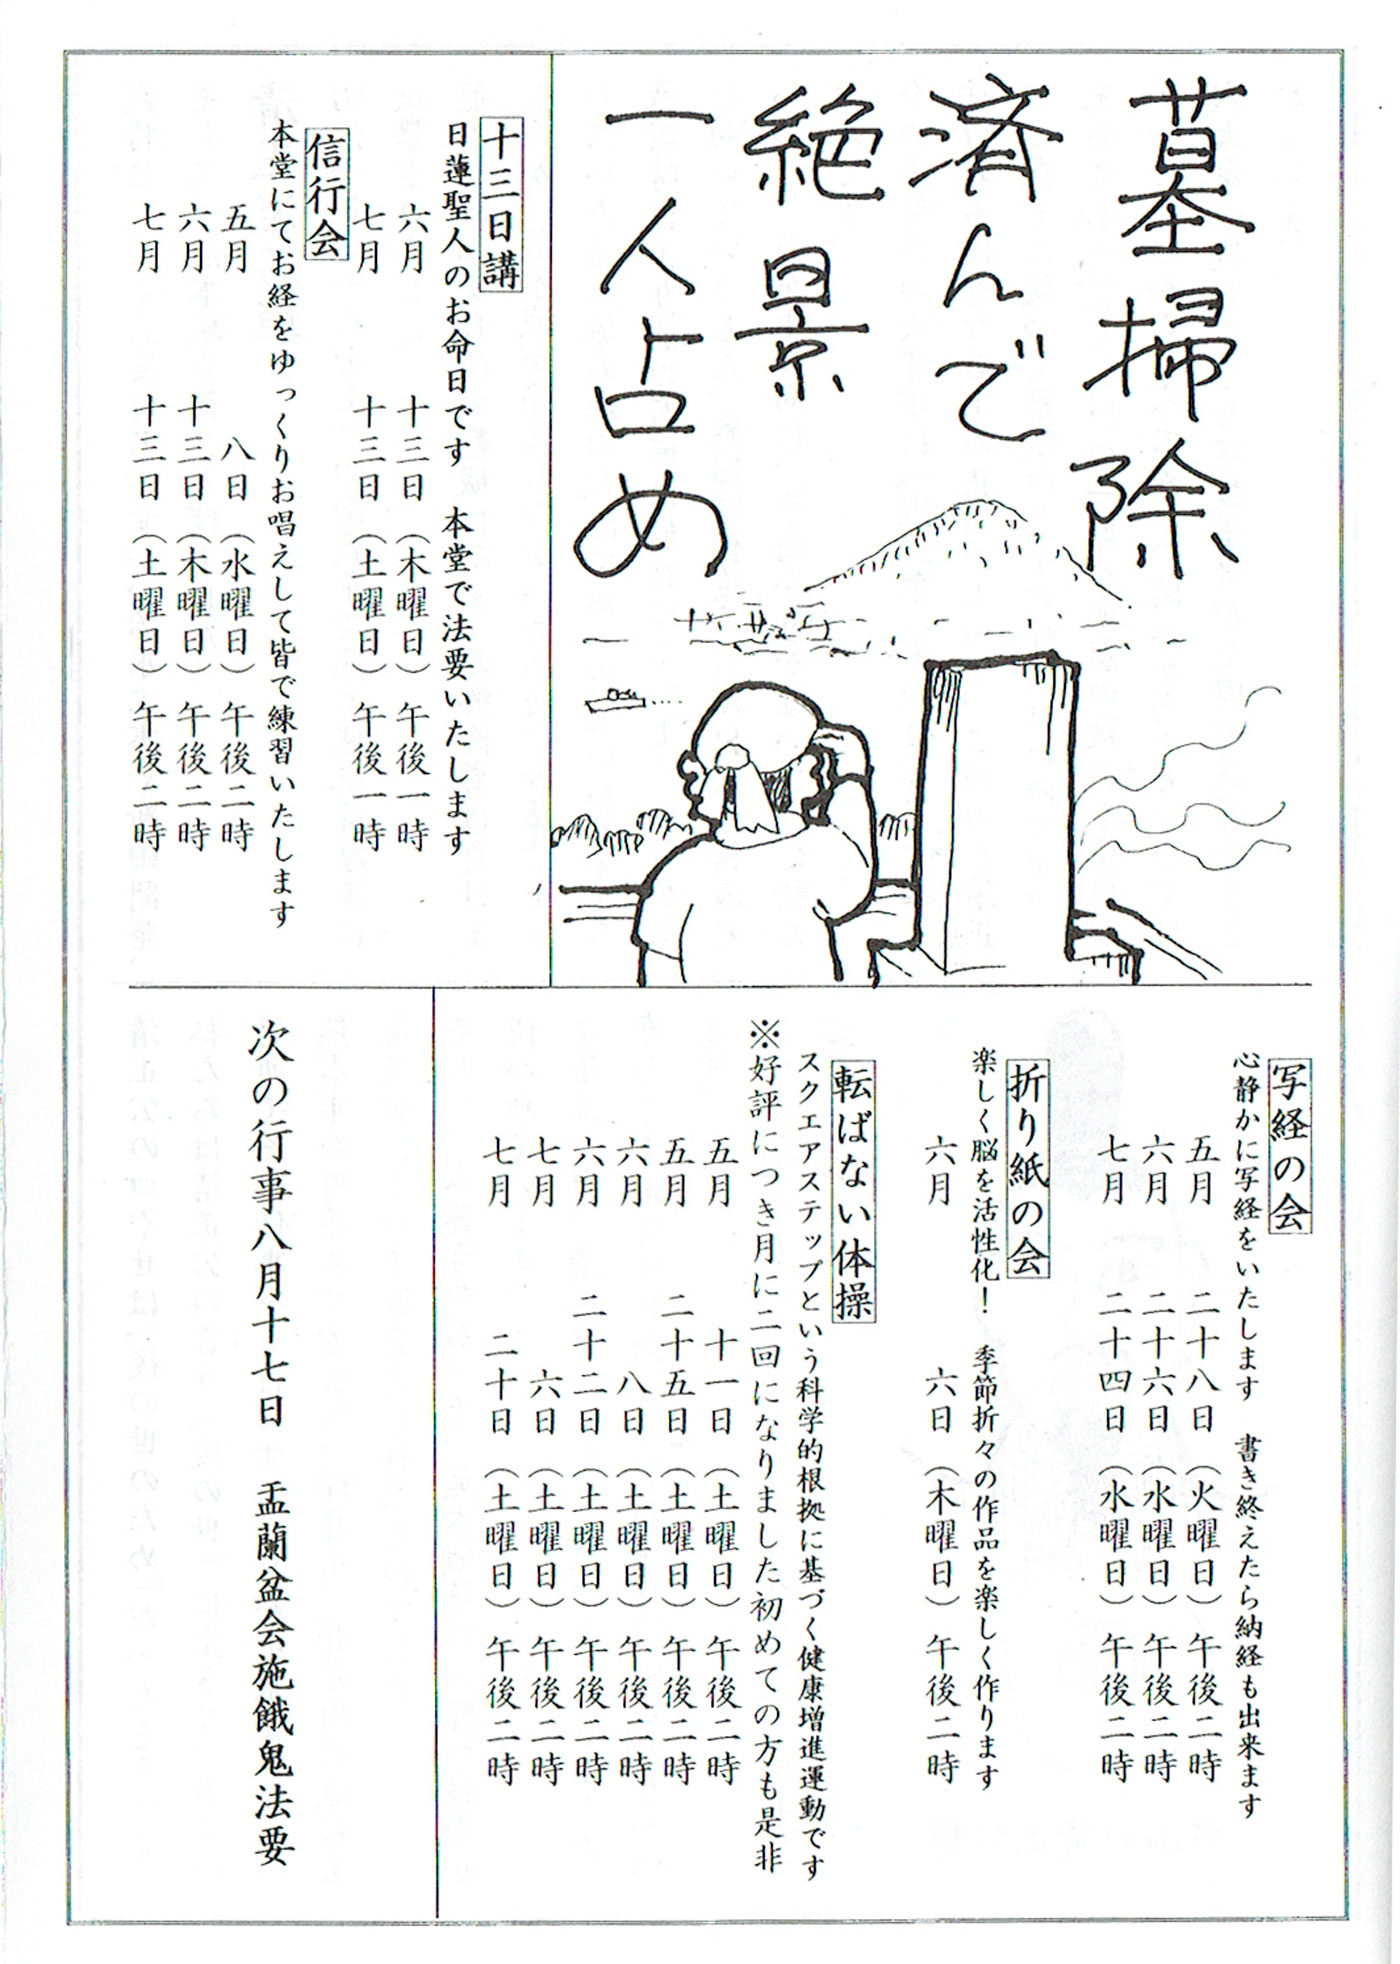 墓掃除
済んで
絶景
一人占め
十三日講
日蓮聖人のお命日です　本堂で法要いたします
六月　十三日（木曜日）午後一時
七月　十三日（土曜日）午後一時
信行会
本堂にてお経をゆっくりお唱えして皆で練習いたします
五月　八日（水曜日）午後二時
六月　十三日（木曜日）午後二時
七月　十三日（土曜日）午後二時
写経の会
心静かに写経をいたします　書き終えたら納経も出来ます
五月　二十八日（火曜日）午後二時
六月　二十六日（水曜日）午後二時
七月　二十四日（水曜日）午後二時
折り紙の会
楽しく脳を活性化！　季節折々の作品を楽しく作ります
六月　六日（木曜日）午後二時
転ばない体操
スクエアステップという科学的根拠に基づく健康増進運動です
※好評につき月に二回になりました初めての方も是非
五月　十一日（土曜日）午後二時
五月　二十五日（土曜日）午後二時
六月　八日（土曜日）午後二時
六月　二十二日（土曜日）午後二時
七月　六日（土曜日）午後二時
七月　二十日（土曜日）午後二時
次の行事八月十七日　盂蘭盆会施餓鬼法要